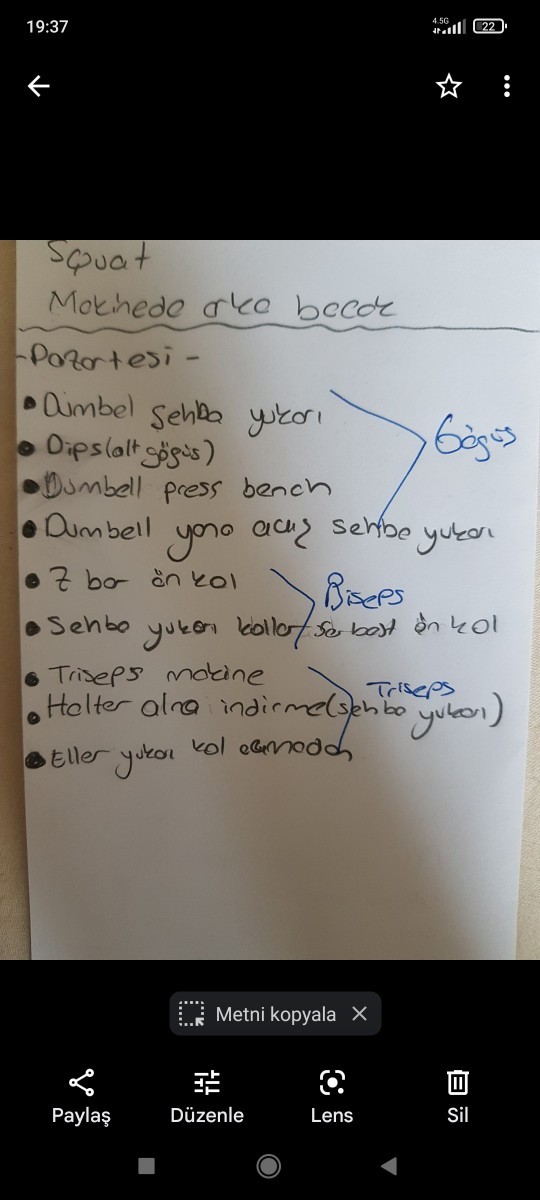 19:37
4.5G 22
Squat
Makinede arka bacak
-Pazartesi-
• Dumbel Sehba yukarı
• Dips(alt göğüs)
Göğüs
• Dumbell press bench
• Dumbell yana açış sehba yukarı
• Z bar ön kol
Biseps
• Sehba yukarı kollar serbest ön kol
• Triseps makine
Triseps
• Halter alna indirme(sehba yukarı)
• Eller yukarı kol
Metni kopyala
Paylaş Düzenle Lens Sil